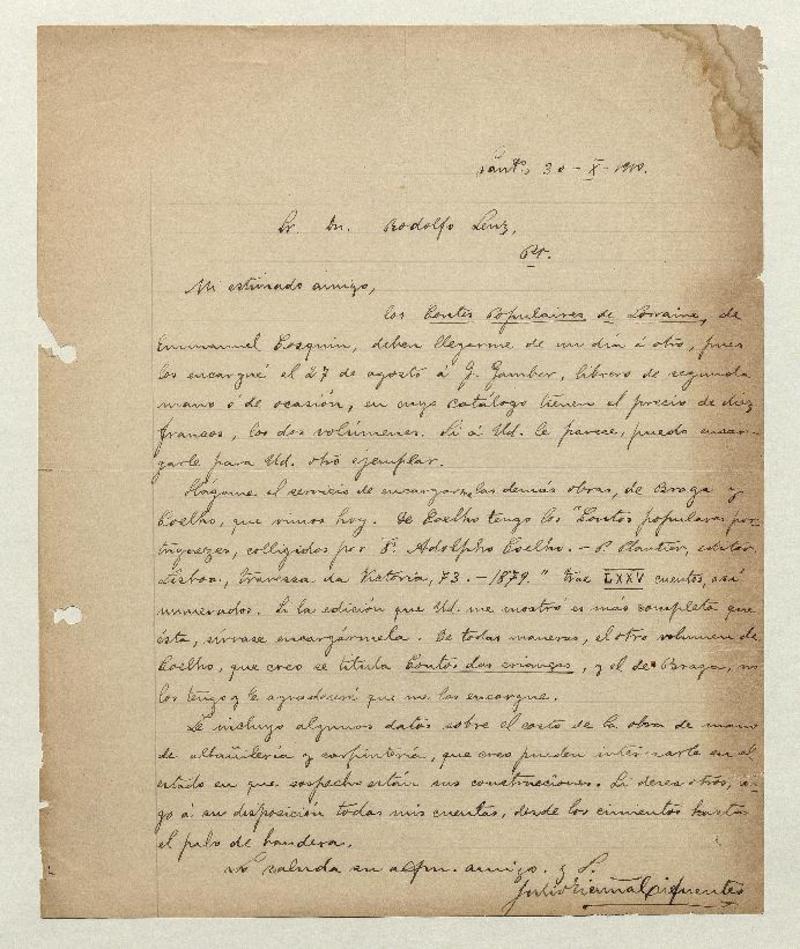 Sant.º, 30 - X - 1910.
Sr. Dn. Rodolfo Lenz,
Pt.
Mi estimado amigo,
los Contes Populaires de Lorraine, de
Emmanuel Cosquin, deben llegarme de un día á otro, pues
los encargué el 27 de agosto á J. Gamber, librero de segunda
mano ó de ocasión, en cuyo catálogo tienen el precio de diez
francos, los dos volúmenes. Si á Ud. le parece, puedo encar-
garle para Ud. otro ejemplar.
Hágame el servicio de encargarme las demás obras, de Braga y
Coelho, que vimos hoy. De Coelho tengo los "Contos populares por-
tuguezes, colligidos por F. Adolpho Coelho. - P. Plantier, editor,
Lisboa, Travessa da Victoria, 73. - 1879." Trae LXXV cuentos, así
numerados. Si la edición que Ud. me mostró es más completa que
ésta, sírvase encargármela. De todas maneras, el otro volumen de
Coelho, que creo se titula Contos das crianças, y el de Braga, no
los tengo y le agradeceré que me los encargue.
Le incluyo algunos datos sobre el costo de la obra de mano
de albañilería y carpintería, que creo pueden interesarle en el
estado en que sospecho están sus construcciones. Si desea otros,
go á su disposición todas mis cuentas, desde los cimientos hasta
el palo de bandera.
Lo saluda su afm. amigo. y S.
Julio Vicuña Cifuentes